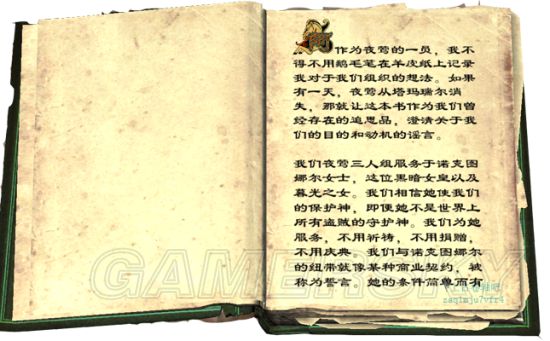 作为夜莺的一员，我不
得不用鹅毛笔在羊皮纸上记录
我对于我们组织的想法。如果
有一天，夜莺从塔玛瑞尔消
失，那就让这本书作为我们曾
经存在的追思品，澄清关于我
们的目的和动机的谣言。
我们夜莺三人组服务于诺克图
娜尔女士，这位黑暗女皇以及
暮光之女。我们相信她使我们
的保护神，即便她不是世界上
所有盗贼的守护神。我们为她
服务，不用祈祷，不用捐赠，
不用庆典。我们与诺克图娜尔
的纽带就像某种商业契约，被
称为誓言。她的条件简单而有
GAMERSKY
zaq1mju7vfr4